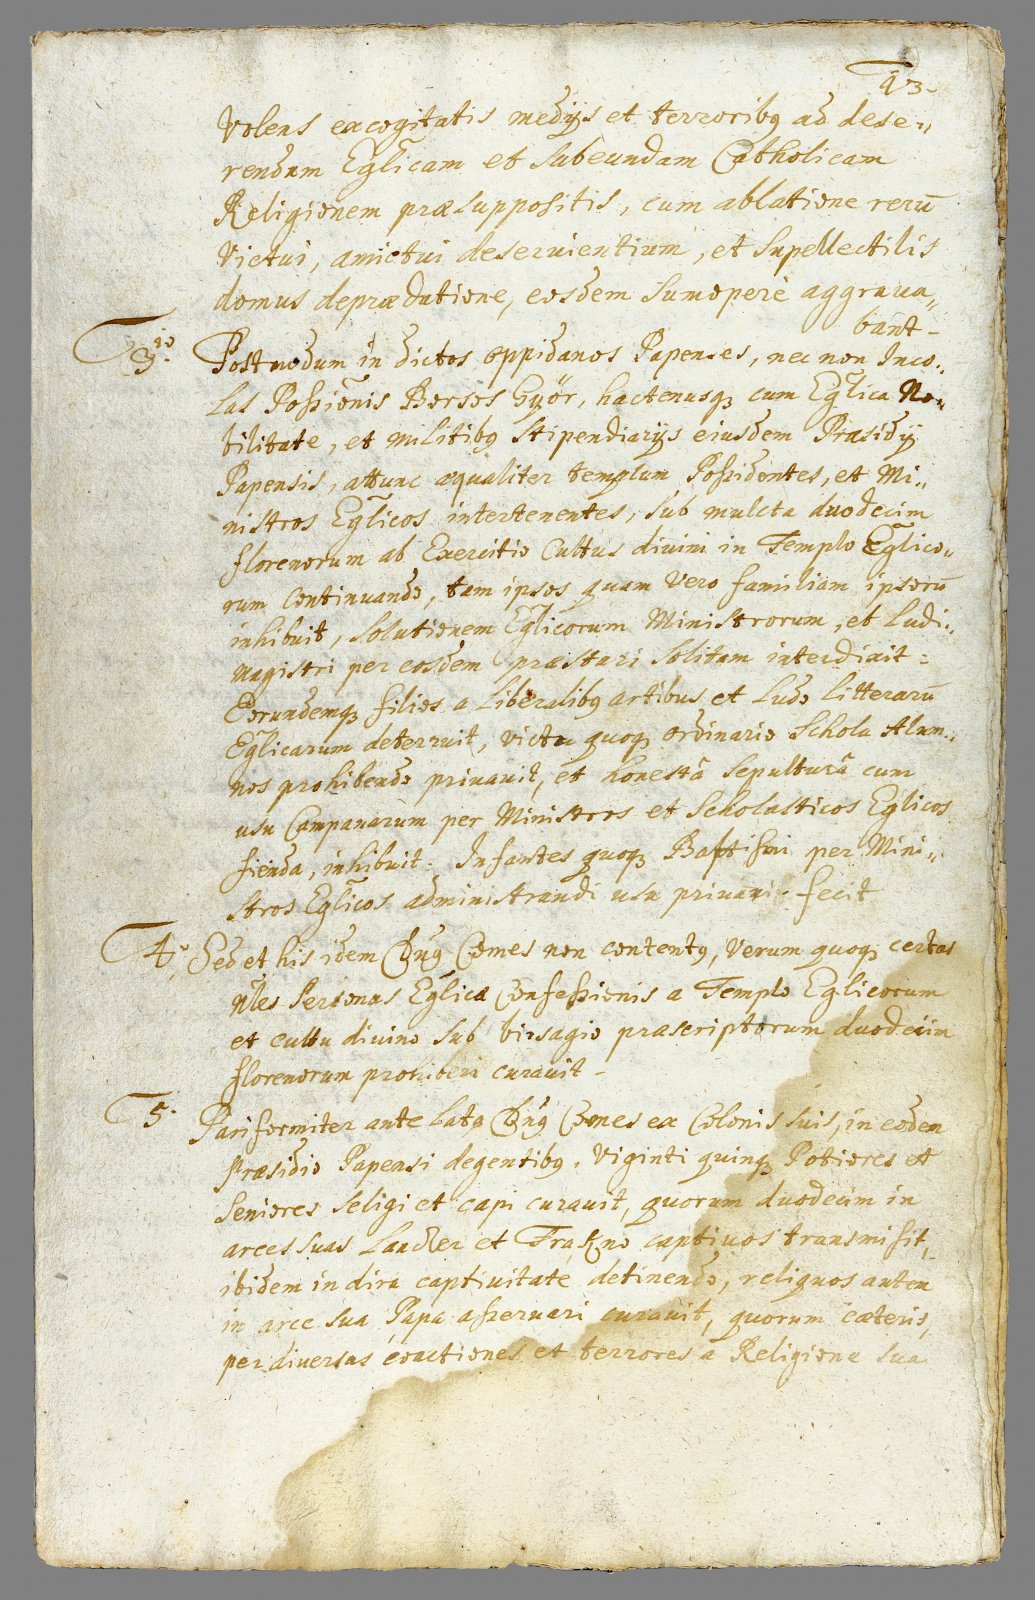 13.
Volens excogitatis medijs et terroribq ad dese„
rendam Eglicam et subeundam Catholicam
Religionem præsuppositis, cum ablatione rerū
victui, amictui deseruientium, et supellectilis
domus deprædatione, eosdem sumoperè aggraua„
bant –
3io. Postmodum in dictos oppidanos Papenses, nec non Inco„
las Poßionis Borsos Győr, hactenusq cum Eglica No„
bilitate, et militibq stipendiarijs eiusdem Præsidij
Papensis, attunc æqualiter templum Poßidentes, et Mi„
nistros Eglicos intertenentes, sub mulcta duodecim
florenorum ab Exercitio Cultus diuini in Templo Eglico„
rum continuando, tam ipsos quam vero familiam ipsorū
inhibuit, solutionem Eglicorum Ministrorum, et Ludi„
magistri per eosdem præstari solitam interdixit:
Eorundemq filios a liberalibq artibus et Ludo litterarū
Eglicarum deterruit, victu quoq ordinario Schola Alum„
nos prohibendo priuauit, et honestâ sepulturâ cum
usu Campanarum per Ministros et Scholasticos Eglicos
fienda, inhibuit. Infantes quoq Baptismi per Mini„
stros Eglicos administrandi usu priuari fecit
4o. Sed et his idem Dnq Comes non contentq, verum quoq certas
Nles Personas Eglicæ Confeßionis a Templo Eglicorum
et cultu diuino sub birsagio præscriptorum duodecim
florenorum prohiberi curauit –
5. Pariformiter ante latq Dnq Comes ex Colonis suis, in eodem
Præsidio Papensi degentibq, viginti quinq Potiores et
Seniores seligi et capi curauit, quorum duodecim in
arces suas Lanczer et Frakno captiuos transmisit,
ibidem in dira captiuitate detinendo, reliquos autem
in arce sua Papa aßeruari curauit, quorum cæteris,
per diuersas exactiones et terrores a Religione sua